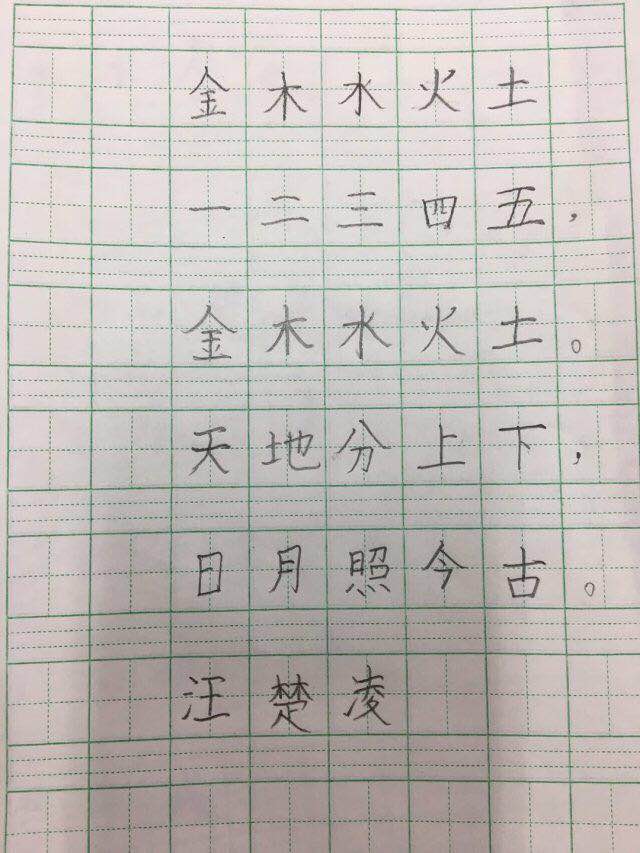 金木水火土
一二三四五，
金木水火土。
天地分上下，
日月照今古。
汪楚凌